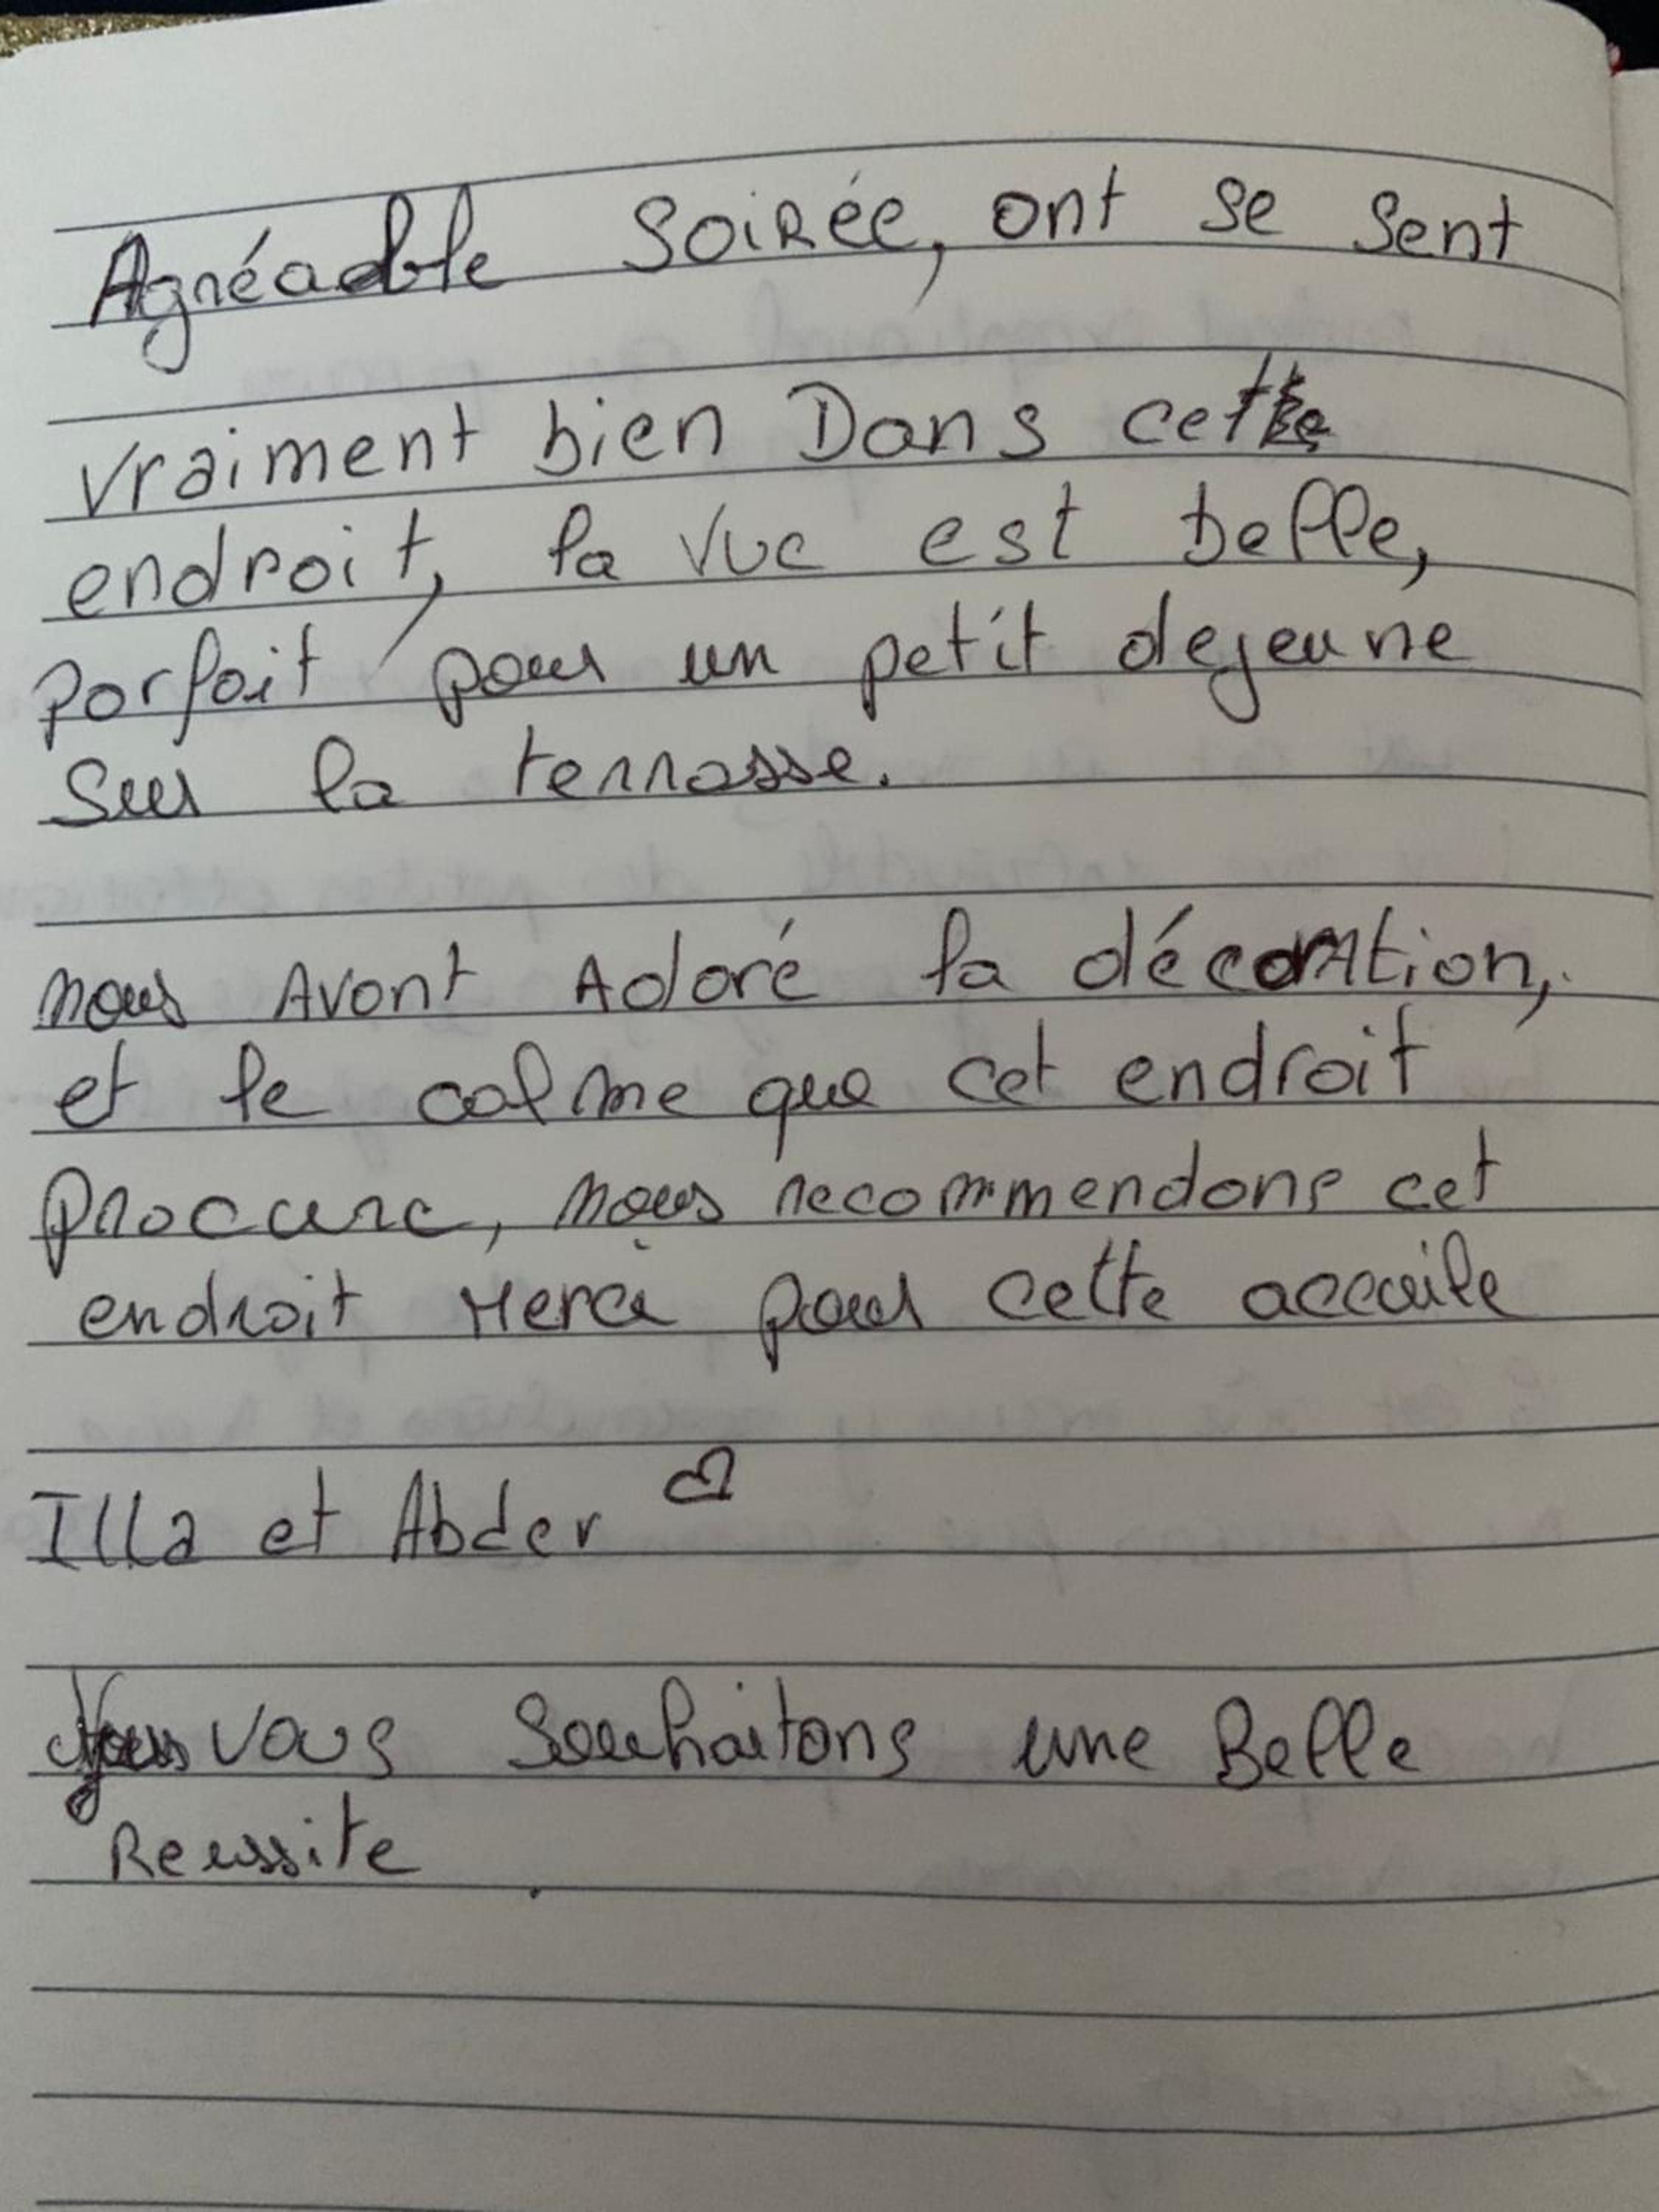 Agréable Soirée, ont se sent
vraiment bien Dans cette
endroit, la vue est belle,
parfait pour un petit dejeune
Sur la terrasse.
nous Avont Adoré la décoration,
et le calme que cet endroit
procure, nous recommendons cet
endroit Merci pour cette accuile
Illa et Abder ♡
Nous vous Souhaitons une Belle
Reussite.